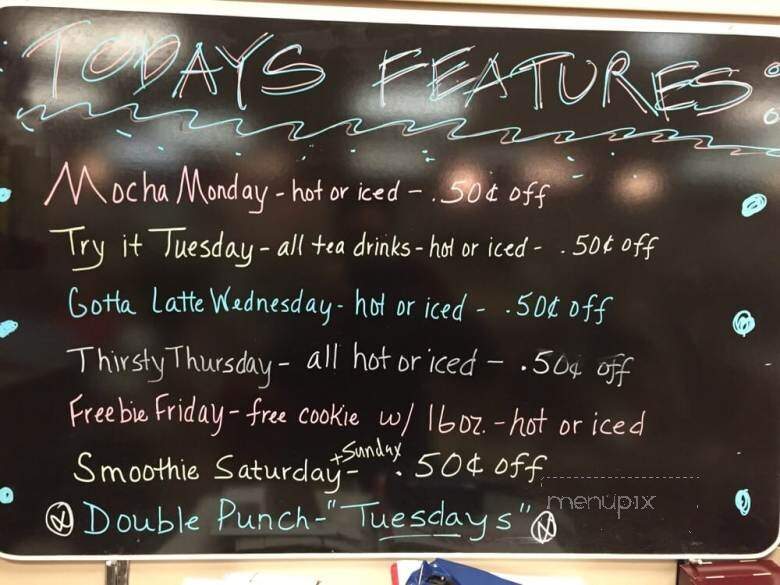 TODAYS FEATURES:
Mocha Monday - hot or iced - .50¢ off
Try it Tuesday - all tea drinks - hot or iced - .50¢ off
Gotta Latte Wednesday - hot or iced - .50¢ off
Thirsty Thursday - all hot or iced - .50¢ off
Freebie Friday - free cookie w/ 16oz. - hot or iced
Smoothie Saturday + Sunday - .50¢ off
Double Punch - "Tuesdays"
menupix